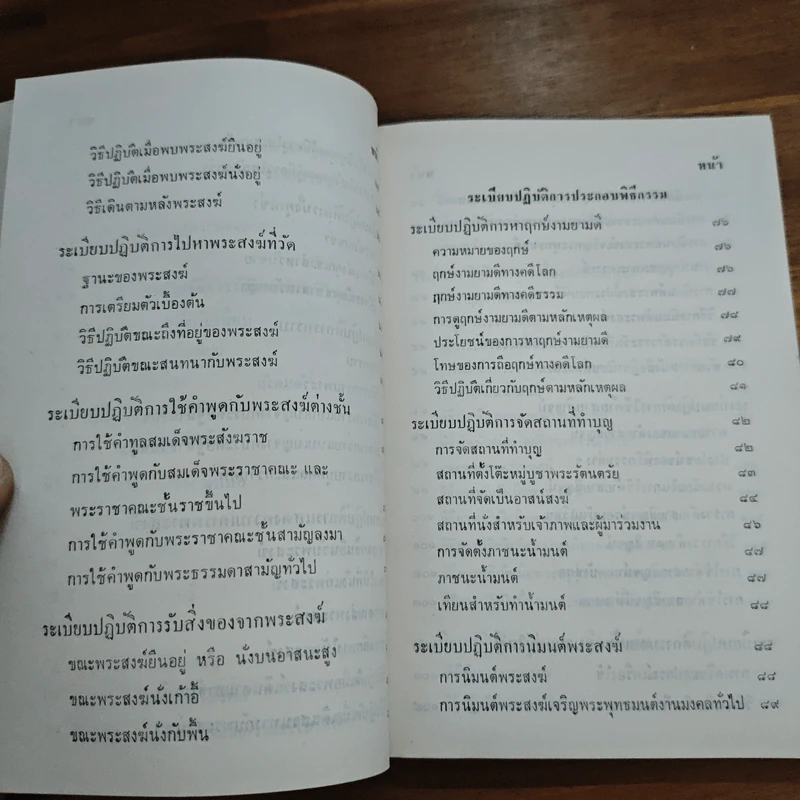 วิธีปฏิบัติเมื่อพบพระสงฆ์ยืนอยู่
วิธีปฏิบัติเมื่อพบพระสงฆ์นั่งอยู่
วิธีเดินตามหลังพระสงฆ์
ระเบียบปฏิบัติการไปหาพระสงฆ์ที่วัด
ฐานะของพระสงฆ์
การเตรียมตัวเบื้องต้น
วิธีปฏิบัติขณะถึงที่อยู่ของพระสงฆ์
วิธีปฏิบัติขณะสนทนากับพระสงฆ์
ระเบียบปฏิบัติการใช้คำพูดกับพระสงฆ์ต่างชั้น
การใช้คำทูลสมเด็จพระสังฆราช
การใช้คำพูดกับสมเด็จพระราชาคณะ และ
พระราชาคณะชั้นราชขึ้นไป
การใช้คำพูดกับพระราชาคณะชั้นสามัญลงมา
การใช้คำพูดกับพระธรรมดาสามัญทั่วไป
ระเบียบปฏิบัติการรับสิ่งของจากพระสงฆ์
ขณะพระสงฆ์ยืนอยู่ หรือ นั่งบนอาสนะสูง
ขณะพระสงฆ์นั่งเก้าอี้
ขณะพระสงฆ์นั่งกับพื้น
หน้า
ระเบียบปฏิบัติการประกอบพิธีกรรม
ระเบียบปฏิบัติการหาฤกษ์งามยามดี ๗๖
ความหมายของฤกษ์ ๗๖
ฤกษ์งามยามดีทางคดีโลก ๗๖
ฤกษ์งามยามดีทางคดีธรรม ๗๗
การดูฤกษ์งามยามดีตามหลักเหตุผล ๗๘
ประโยชน์ของการหาฤกษ์งามยามดี ๗๙
โทษของการถือฤกษ์ทางคดีโลก ๘๐
วิธีปฏิบัติเกี่ยวกับฤกษ์ตามหลักเหตุผล ๘๑
ระเบียบปฏิบัติการจัดสถานที่ทำบุญ ๘๒
การจัดสถานที่ทำบุญ ๘๒
สถานที่ตั้งโต๊ะหมู่บูชาพระรัตนตรัย ๘๓
สถานที่จัดเป็นอาสน์สงฆ์ ๘๔
สถานที่นั่งสำหรับเจ้าภาพและผู้มาร่วมงาน ๘๖
การจัดตั้งภาชนะน้ำมนต์ ๘๗
ภาชนะน้ำมนต์ ๘๗
เทียนสำหรับทำน้ำมนต์ ๘๘
ระเบียบปฏิบัติการนิมนต์พระสงฆ์ ๘๘
การนิมนต์พระสงฆ์ ๘๘
การนิมนต์พระสงฆ์เจริญพระพุทธมนต์งานมงคลทั่วไป ๘๙